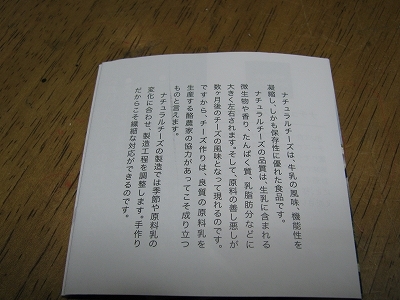 ナチュラルチーズは、牛乳の風味、機能性を
凝縮し、しかも保存性に優れた食品です。
ナチュラルチーズの品質は、生乳に含まれる
微生物や香り、たんぱく質、乳脂肪分などに
大きく左右されます。そして、原料の善し悪しが
数ヶ月後のチーズの風味となって現れるのです。
ですから、チーズ作りは、良質の原料乳を
生産する酪農家の協力があってこそ成り立つ
ものと言えます。
ナチュラルチーズの製造では季節や原料乳の
変化に合わせ、製造工程を調整します。手作り
だからこそ繊細な対応ができるのです。